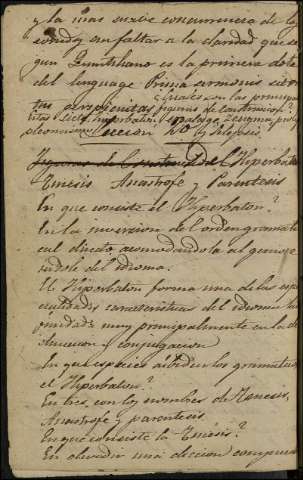 y la mas suave concurrencia de los
sonidos sin faltar a la claridad que se
gun Quintiliano es la primera dote
del lenguage Prima sermonis
¿Cuales son las principales
figuras de construccion?
Hiperbaton Silepsis
pleonasmo
Leccion 20
Figuras de Construc Del Hiperbaton
Tmesis Anastrofe y Parentesis
En que consiste el Hiperbaton?
En la inversion del orden gramati
cal directo acomodandola al genio e
indole del idioma.
El Hiperbaton forma una de las espe
cialidades caracteristicas del idioma
muy principalmente en la de
clinacion y conjugacion
En que especies dividen los gramaticos
el Hiperbaton?
En tres con los nombres de Tmesis,
Anastrofe y parentesis
En que consiste la Tmésis?
En dividir una diccion compuesta